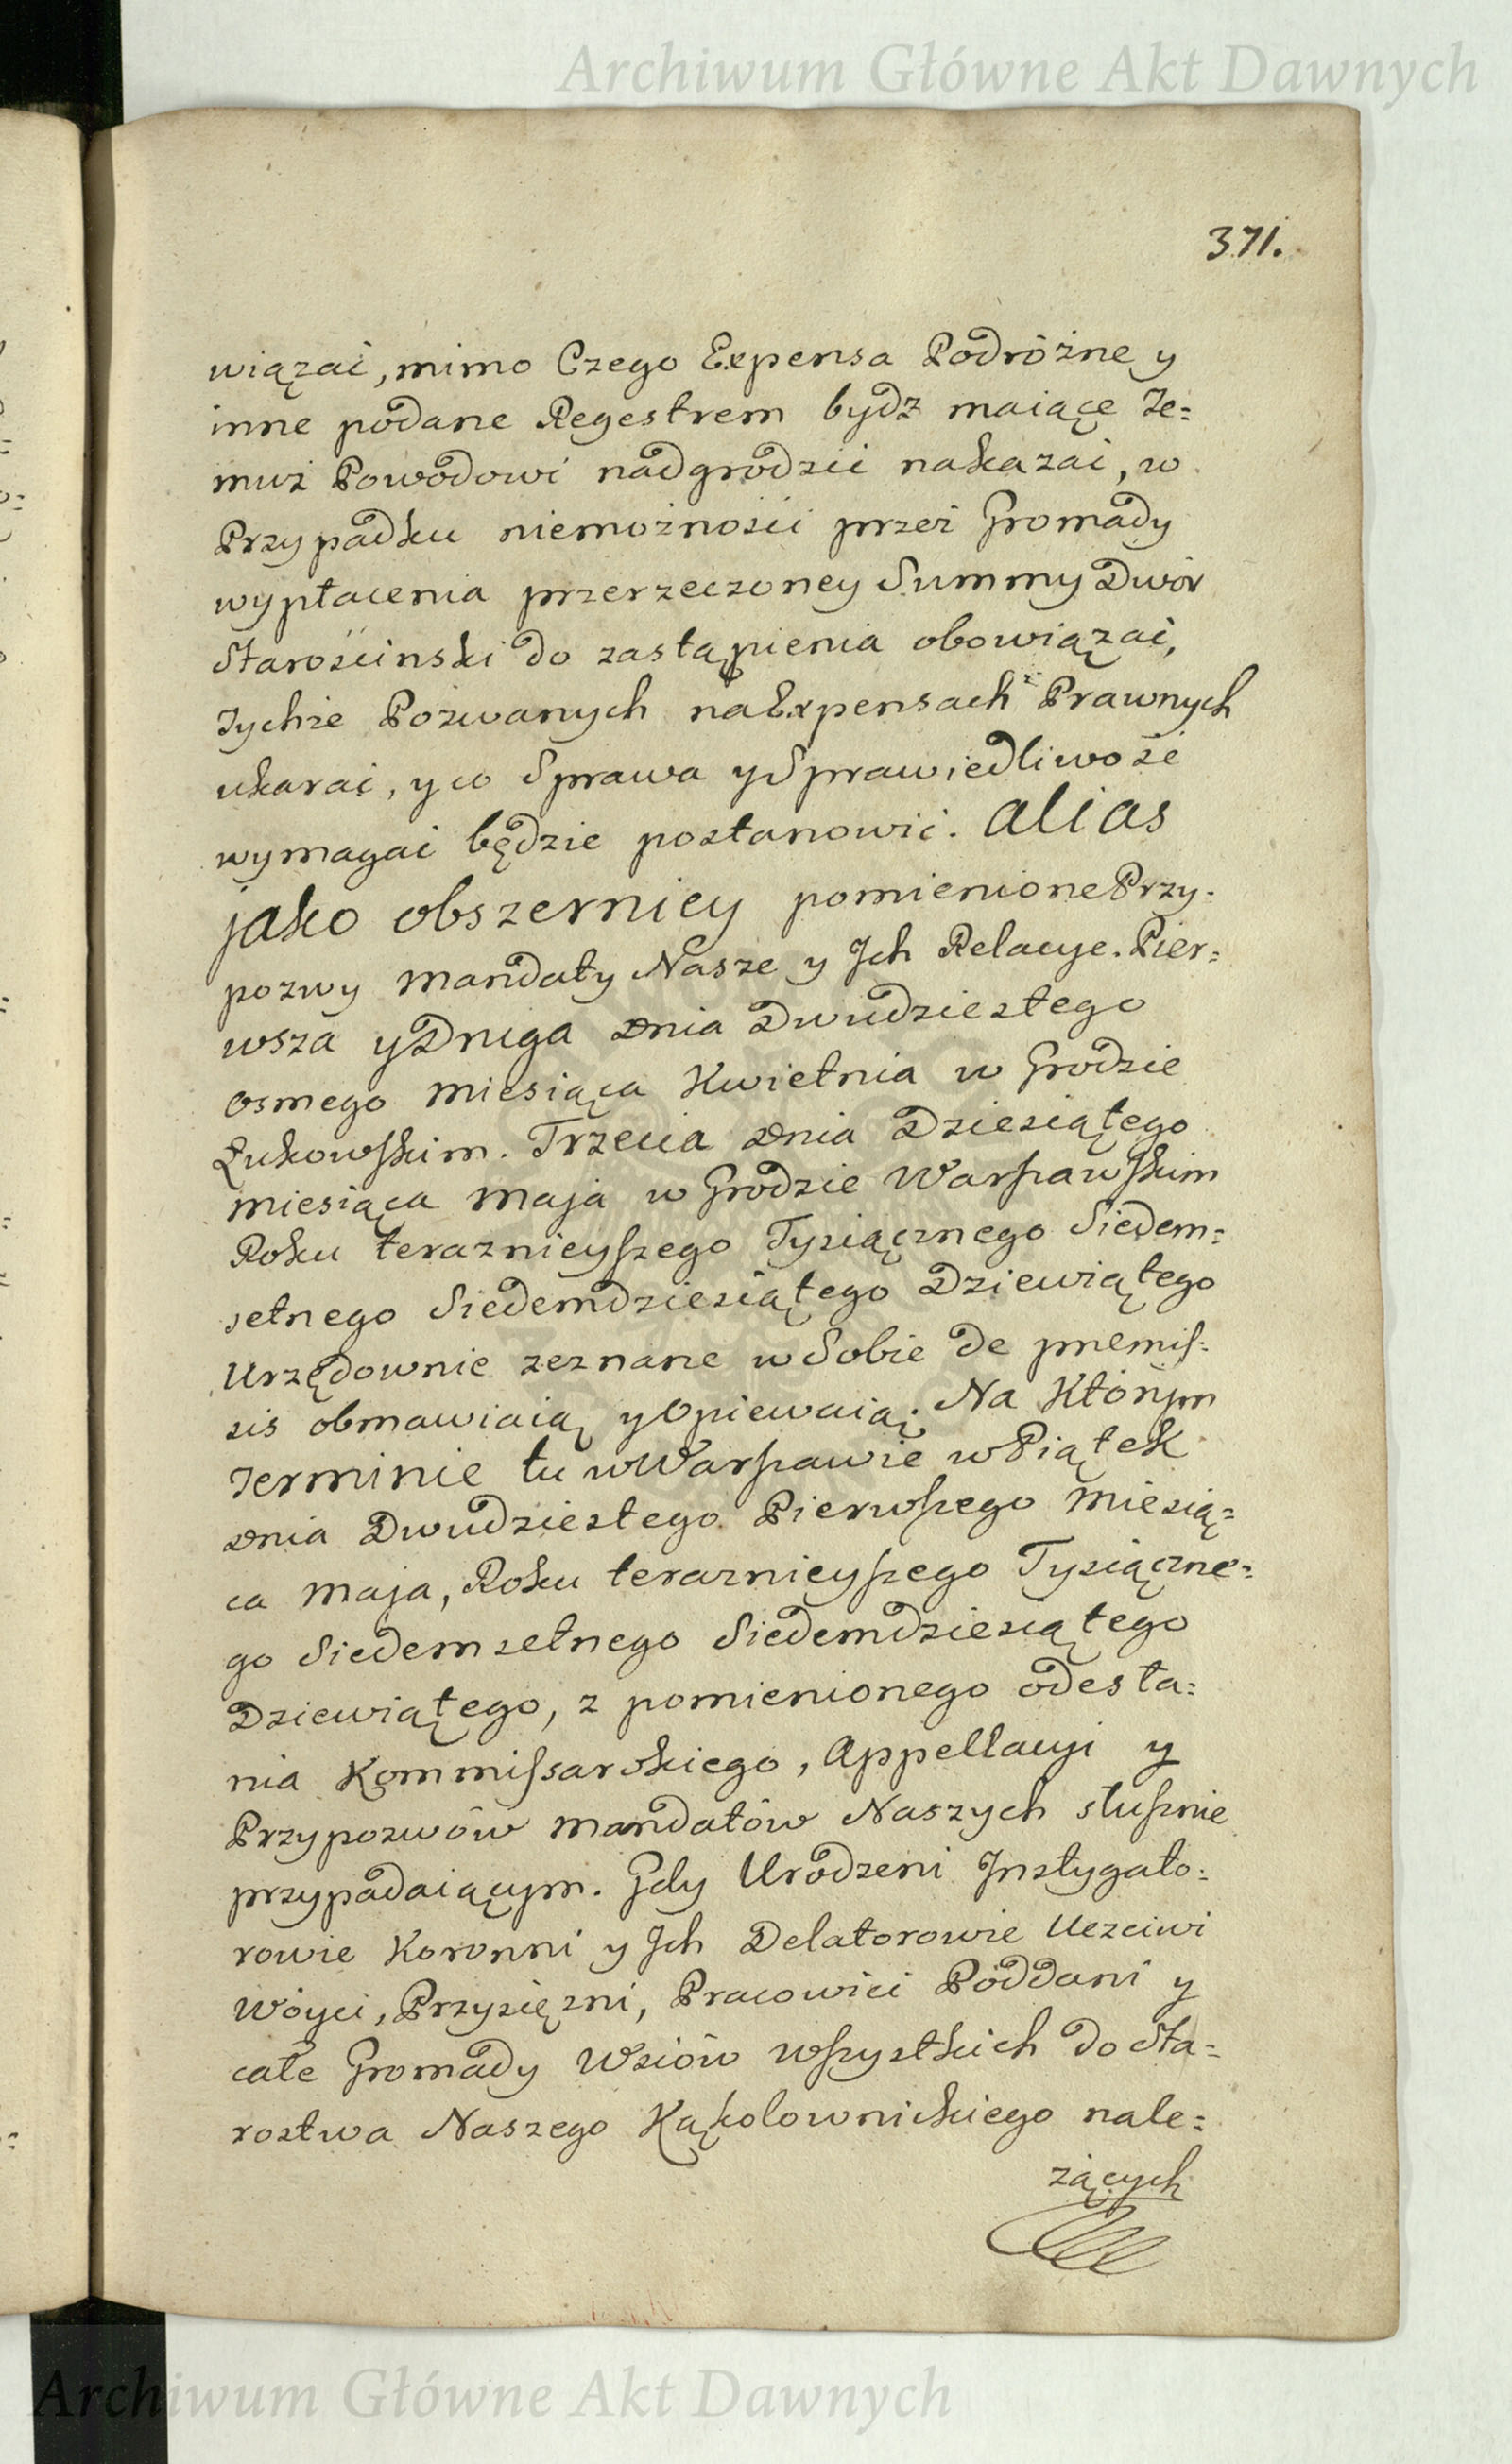 Archiwum Główne Akt Dawnych
371.
wiązać, mimo Czego Expensa Podróżne y
inne podane Regestrem bydz maiące Te=
muż Powodowi nadgrodzić nakazać, w
Przypadku niemożności przez Gromady
wypłacenia przerzeczoney Summy Dwór
Starościnski do zastąpienia obowiązać,
Tychże Pozwanych na Expensach Prawnych
ukarać, y co Sprawa y Sprawiedliwość
wymagać będzie postanowić. alias
jako obszerniey pomienione Przy-
pozwy Mandaty Nasze y Jch Relacye. Pier=
wsza y Druga Dnia Dwudziestego
Osmego Miesiąca Kwietnia w Grodzie
Łukowskim. Trzecia Dnia Dziesiątego
Miesiąca Maja w Grodzie Warszawskim
Roku teraznieyszego Tysiącznego Siedem=
setnego Siedemdziesiątego Dziewiątego
Urzędownie zeznane w Sobie de premis=
sis obmawiaią y Opiewaią. Na Którym
Terminie tu w Warszawie w Piątek
Dnia Dwudziestego Pierwszego Miesią=
ca Maja, Roku teraznieyszego Tysiączne=
go Siedemsetnego Siedemdziesiątego
Dziewiątego, z pomienionego odesła=
nia Kommissarskiego, Appellacyi y
Przypozwów Mandatów Naszych słusznie
przypadaiącym. Gdy Urodzeni Instygato=
rowie Koronni y Jch Delatorowie Uczciwi
Wóyci, Przysiężni, Pracowici Poddani y
całe Gromady Wsiów wszystkich do Sta=
rostwa Naszego Kąkolownickiego nale=
żących
Archiwum Główne Akt Dawnych